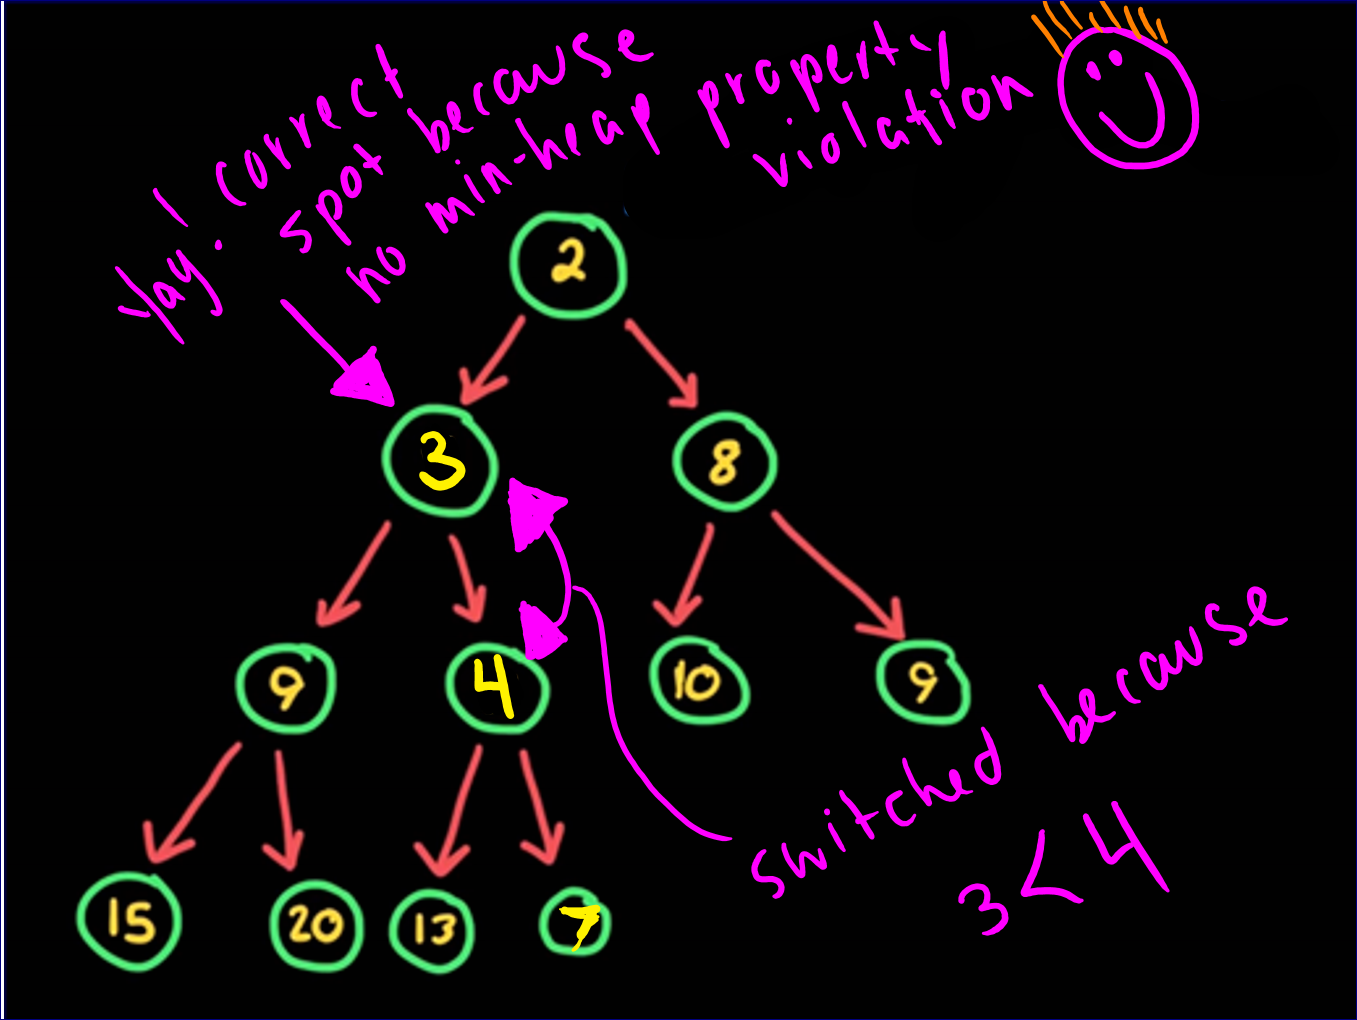 Yay! correct
spot because
no min-heap property
violation
2
3
8
9
4
10
9
15
20
13
7
switched because
3 < 4